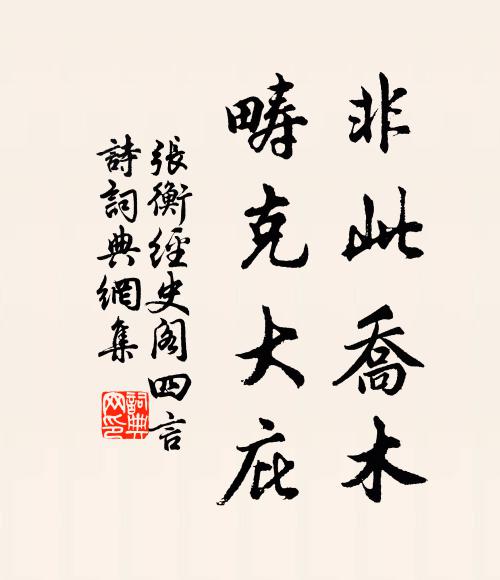 非此喬木
疇克大庇
張衡經史閣四言
詩詞典網集
詞典網印